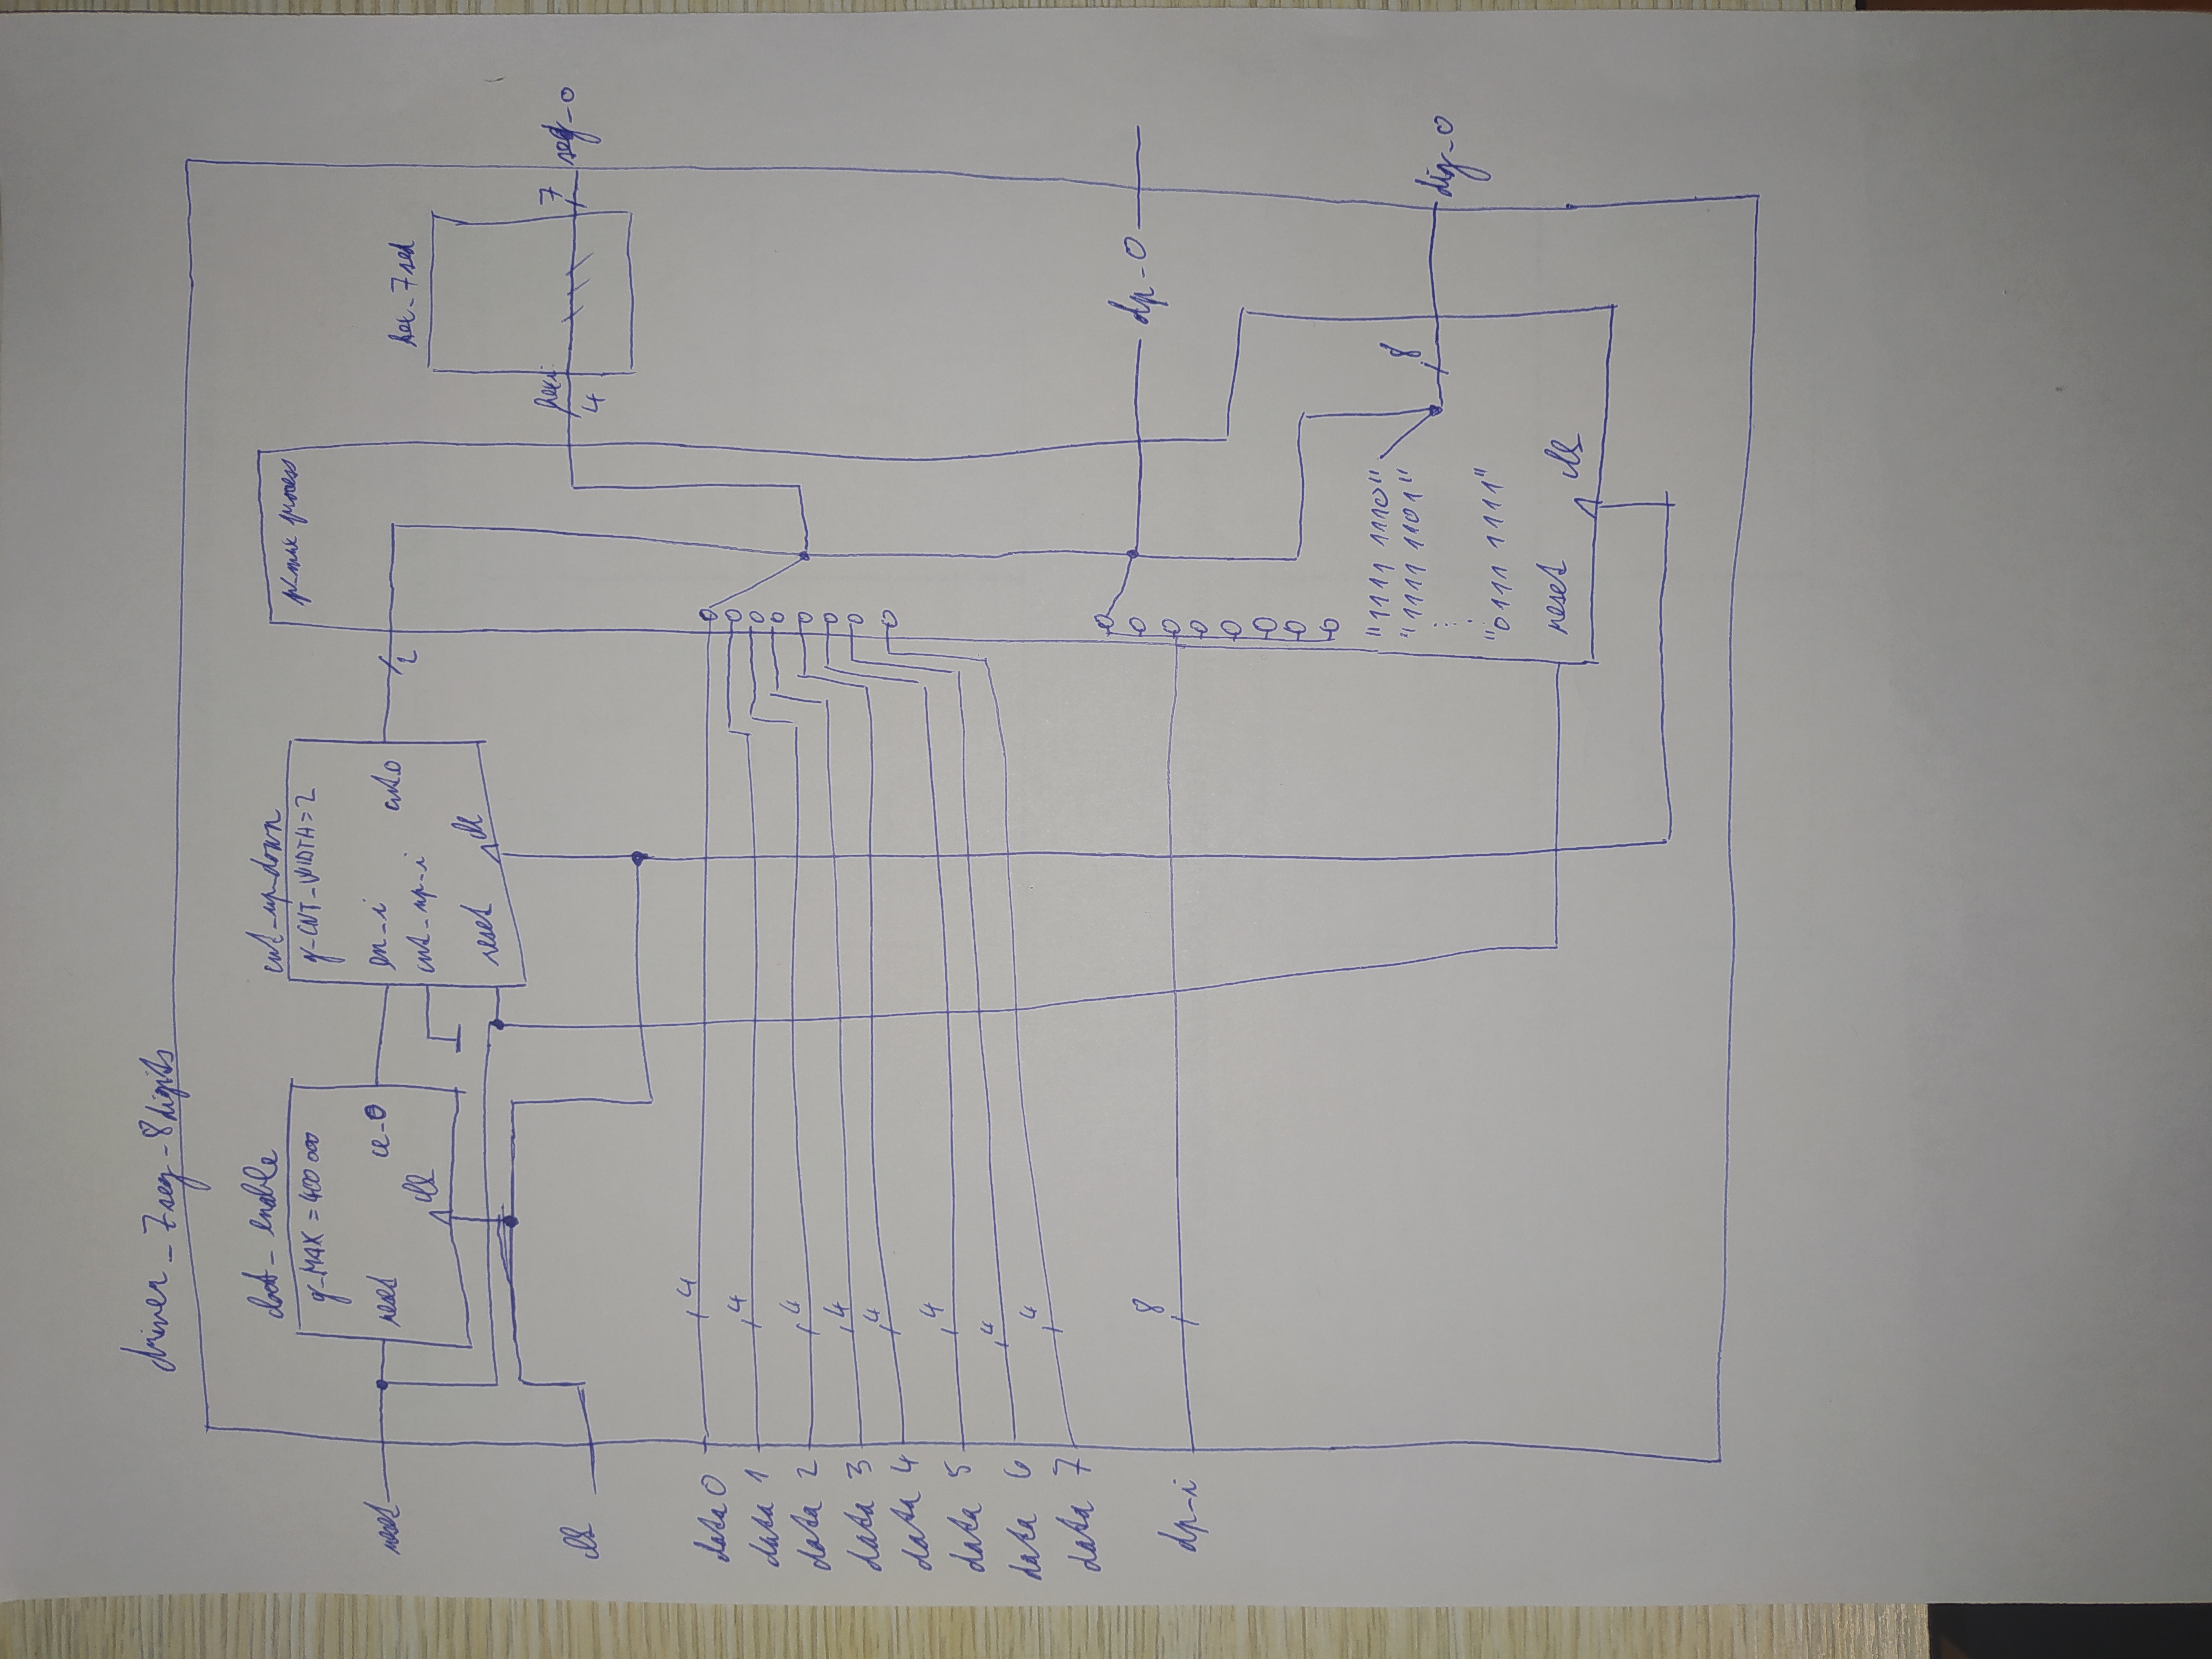 driver_7seg_8digits
clock_enable
g_MAX = 400 000
reset
ce_o
clk
cnt_up_down
g_CNT_WIDTH = 2
en_i
cnt_up_i
cnt o
reset
clk
2
p_mux process
hex_7seg
hex i
4
7
seg_o
reset
clk
data 0
4
data 1
4
data 2
4
data 3
4
data 4
4
data 5
4
data 6
4
data 7
4
dp_i
8
dp_o
"1111 1110"
"1111 1101"
"0111 1111"
8
dig_o
reset
clk